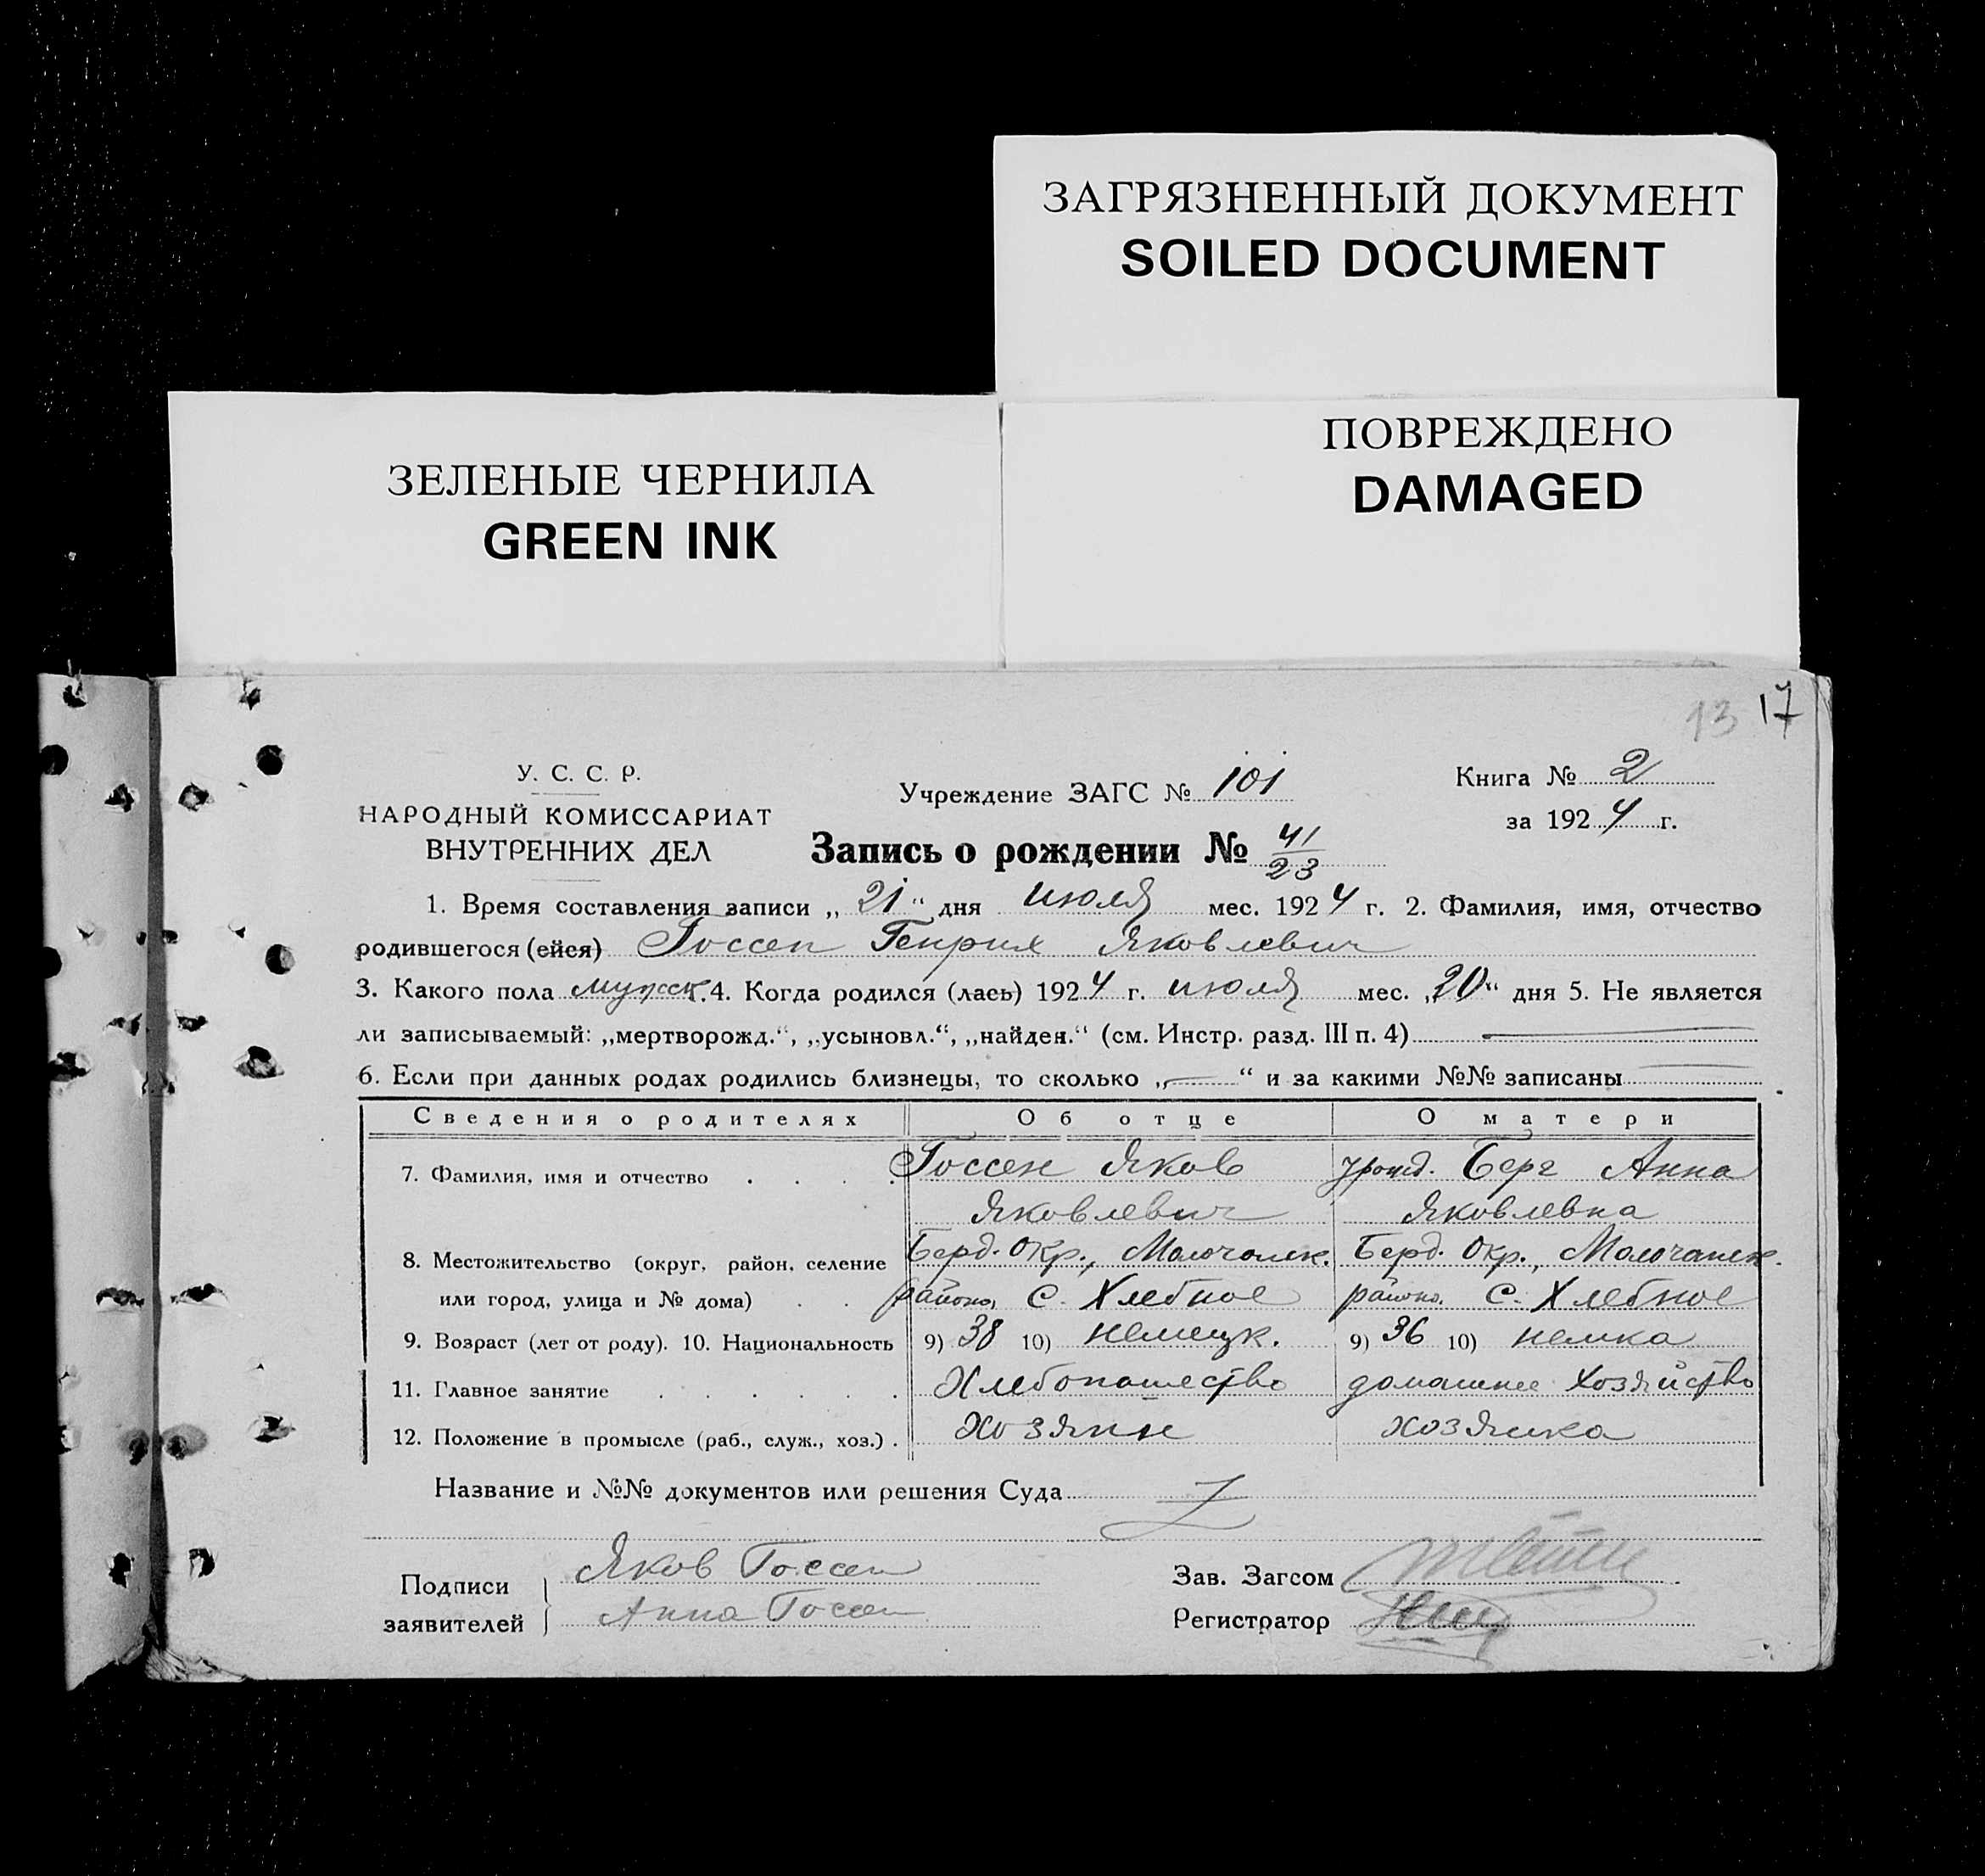 ЗАГРЯЗНЕННЫЙ ДОКУМЕНТ
SOILED DOCUMENT
ЗЕЛЕНЫЕ ЧЕРНИЛА
GREEN INK
ПОВРЕЖДЕНО
DAMAGED
13 17
У. С. С. Р.
НАРОДНЫЙ КОМИССАРИАТ
ВНУТРЕННИХ ДЕЛ
Учреждение ЗАГС № 101
Книга № 2
за 1924 г.
Запись о рождении № 41/23
1. Время составления записи „21“ дня июля мес. 1924 г. 2. Фамилия, имя, отчество
родившегося (ейся) Госсен Генрих Яковлевич
3. Какого пола мужск. 4. Когда родился (лась) 1924 г. июля мес. „20“ дня 5. Не является
ли записываемый: „мертворожд.“, „усыновл.“, „найден.“ (см. Инстр. разд. III п. 4)
6. Если при данных родах родились близнецы, то сколько „—“ и за какими №№ записаны
Сведения о родителях Об отце О матери
7. Фамилия, имя и отчество . . . . Госсен Яков урожд. Берг Анна
Яковлевич Яковлевна
8. Местожительство (округ, район, селение Берд. Окр., Молочанск. Берд. Окр., Молочанск.
или город, улица и № дома) . . района, с. Хлебное района. с. Хлебное
9. Возраст (лет от роду). 10. Национальность 9) 38 10) немецк. 9) 36 10) немка
11. Главное занятие . . . . . . Хлебопашество домашнее хозяйство
12. Положение в промысле (раб., служ., хоз.) . хозяин хозяйка
Название и №№ документов или решения Суда
Подписи
заявителей
Яков Госсен
Анна Госсен
Зав. Загсом
Регистратор